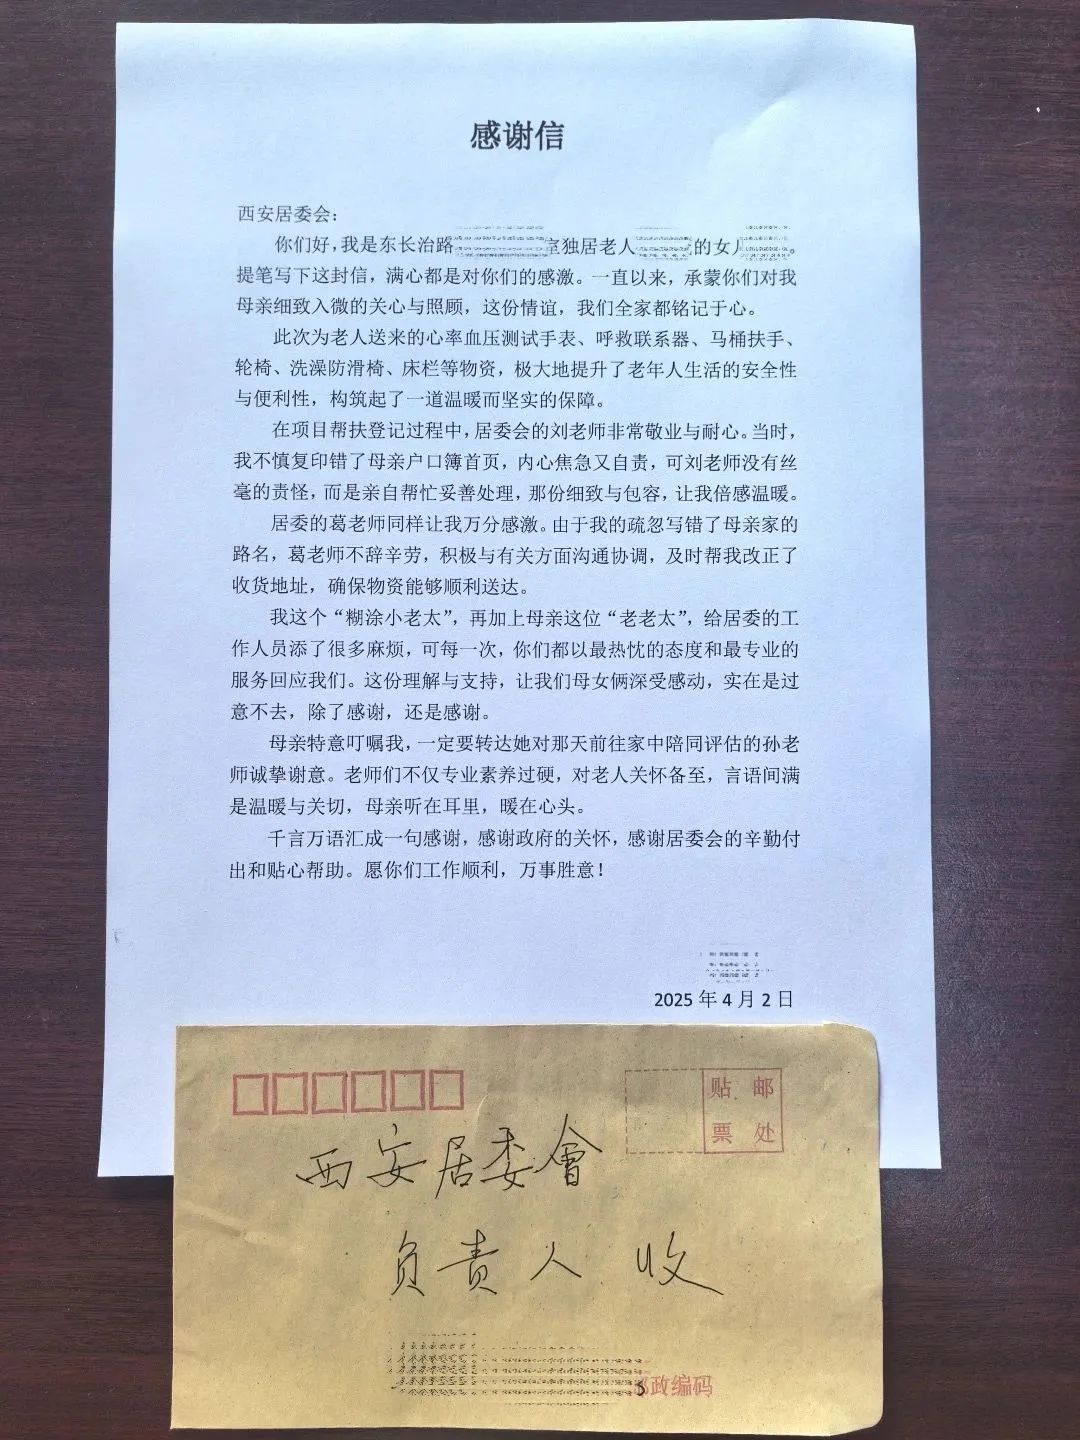 感谢信
西安居委会：
你们好，我是东长治路
室独居老人
的女儿
。
提笔写下这封信，满心都是对你们的感激。一直以来，承蒙你们对我
母亲细致入微的关心与照顾，这份情谊，我们全家都铭记于心。
此次为老人送来的心率血压测试手表、呼救联系器、马桶扶手、
轮椅、洗澡防滑椅、床栏等物资，极大地提升了老年人生活的安全性
与便利性，构筑起了一道温暖而坚实的保障。
在项目帮扶登记过程中，居委会的刘老师非常敬业与耐心。当时，
我不慎复印错了母亲户口簿首页，内心焦急又自责，可刘老师没有丝
毫的责怪，而是亲自帮忙妥善处理，那份细致与包容，让我倍感温暖。
居委的葛老师同样让我万分感激。由于我的疏忽写错了母亲家的
路名，葛老师不辞辛劳，积极与有关方面沟通协调，及时帮我改正了
收货地址，确保物资能够顺利送达。
我这个“糊涂小老太”，再加上母亲这位“老老太”，给居委的工
作人员添了很多麻烦，可每一次，你们都以最热忱的态度和最专业的
服务回应我们。这份理解与支持，让我们母女俩深受感动，实在是过
意不去，除了感谢，还是感谢。
母亲特意叮嘱我，一定要转达她对那天前往家中陪同评估的孙老
师诚挚谢意。老师们不仅专业素养过硬，对老人关怀备至，言语间满
是温暖与关切，母亲听在耳里，暖在心头。
千言万语汇成一句感谢，感谢政府的关怀，感谢居委会的辛勤付
出和贴心帮助。愿你们工作顺利，万事胜意！
2025 年 4 月 2 日
贴 邮
票 处
西安居委會
负责人 收
邮政编码